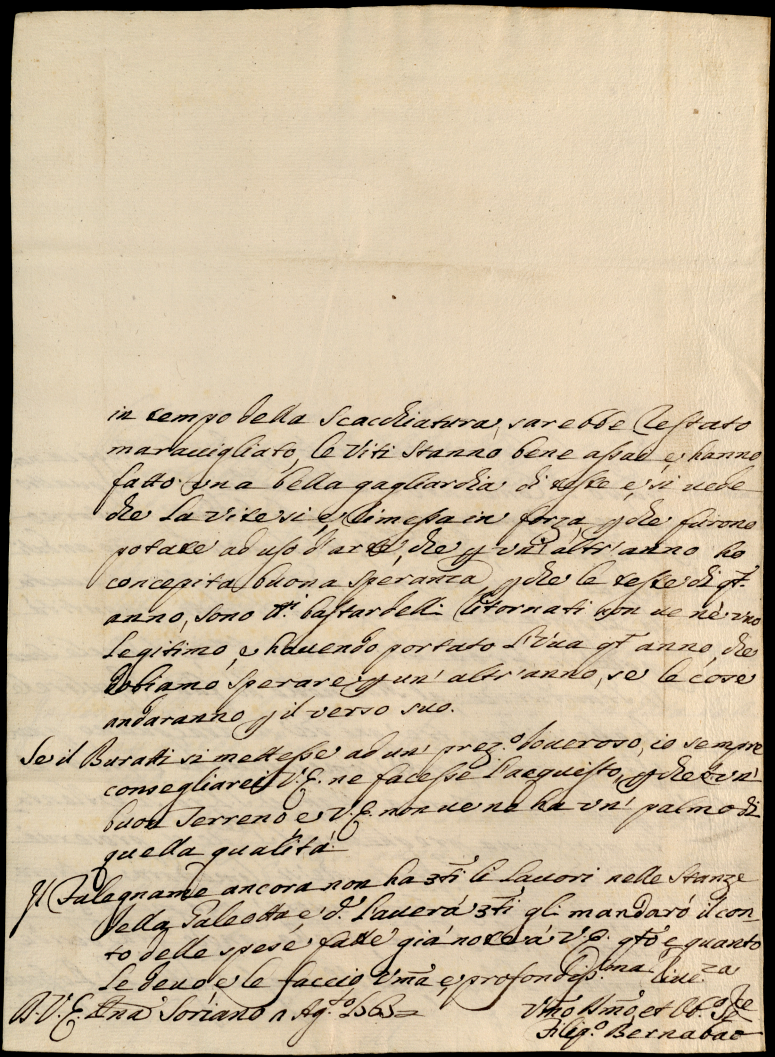 in tempo della Scacchiatura, sarebbe restato
maravigliato, le Viti stanno bene assae, e hanno
fatto una bella gagliardia di teste, e si vede
che la vite si è rimessa in forza, p che furono
potate ad uso d'arte, che p un' altr'anno ho
concepita buona speranza, p che le teste di qt.
anno, sono tti bastardelli ritornati non ve nè uno
legitimo, e havendo portato l'Vua qt anno, che
dobiamo sperare p un' altr'anno, se le cose
andaranno p il verso suo.
Se il Buratti si mettesse ad un' prez.o doveroso, io sempre
consegliarei V.E. ne facesse l'acquisto, p che è un'
buon Terreno e V.E. non ve ne ha un' palmo di
quella qualità.
Il Falegname ancora non ha 3ti li lavori nelle stanze
della Galeotta, e d.o l'averá 3ti gli mandaró il con-
to delle spese fatte giá note á V.E. qto, e quanto
le devo e le faccio Vma e profondiss.ma rive.za
D. V. E. Soriano a Ag.to
Vmo Dmo et Ob.o Se
Filip.o Bernabao